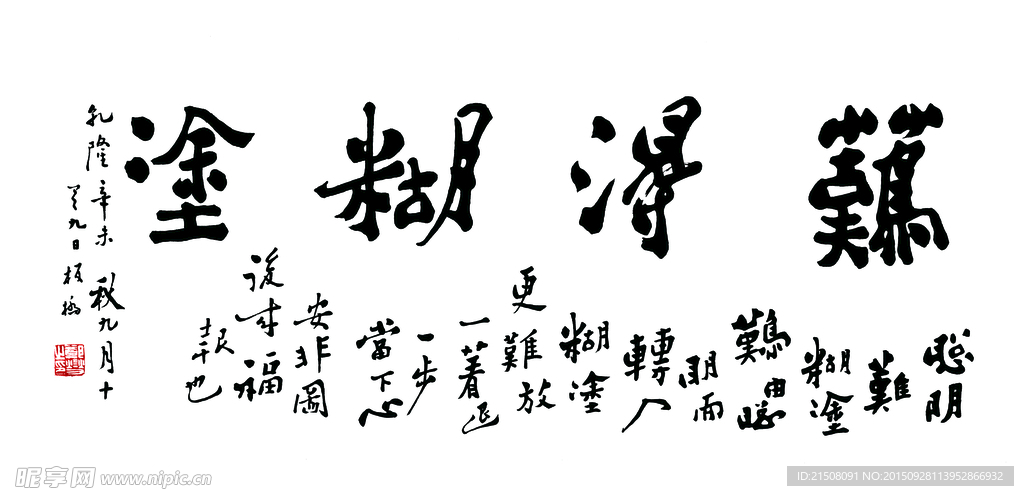 難得糊塗
聰明
難
糊塗
難由聰
明而
轉入
糊塗
更難放
一著退
一步
當下心
安非圖
後來福
報也
乾隆辛未秋九月十
九日板橋
昵享网 www.nipic.cn
ID:21508091 NO:20150928113952866932